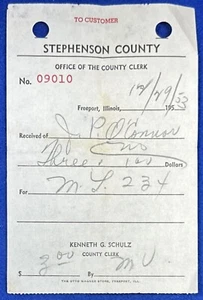 TO CUSTOMER
STEPHENSON COUNTY
OFFICE OF THE COUNTY CLERK
No. 09010
Freeport, Illinois, 12/29/53 195
Received of J. P. O'Connor
Three & no/100 Dollars
For M. L. 234
KENNETH G. SCHULZ
COUNTY CLERK
$ 3.00 By M V
THE OTTO WAGNER STORE, FREEPORT, ILL.